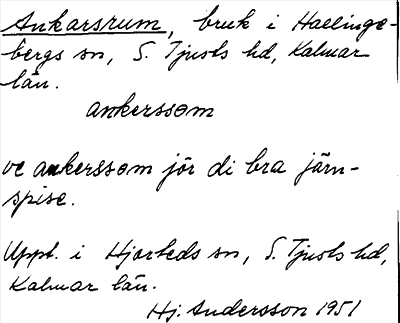 Ankarsrum, bruk i Hallinge-
bergs sn, S. Tjusts hd, Kalmar
län.
ankerssom
ve ankerssom jör di bra järn-
spise.
Uppt. i Hjorteds sn, S. Tjusts hd,
Kalmar län.
Hj. Andersson 1951